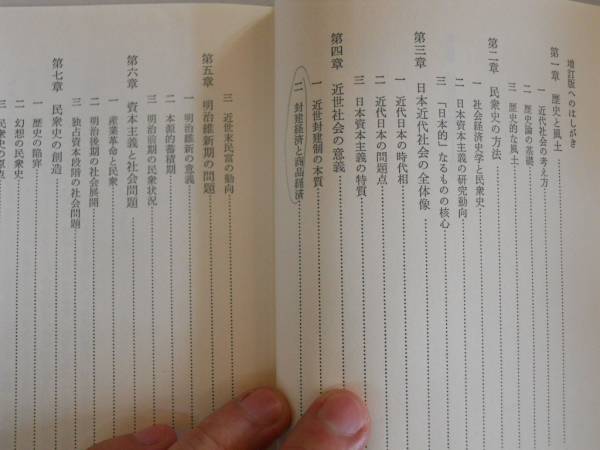 増訂版へのはしがき
第一章 歴史と風土
一 近代社会の考え方
二 歴史論の基礎
三 歴史的な風土
第二章 民衆史の方法
一 社会経済史学と民衆史
二 日本資本主義の研究動向
三 「日本的」なるものの核心
第三章 日本近代社会の全体像
一 近代日本の時代相
二 近代日本の問題点
三 日本資本主義の特質
第四章 近世社会の意義
一 近世封建制の本質
二 封建経済と商品経済
三 近世末民富の動向
第五章 明治維新期の問題
一 明治維新の意義
二 本源的蓄積期
三 明治前期の民衆状況
第六章 資本主義と社会問題
一 産業革命と民衆
二 明治後期の社会展開
三 独占資本段階の社会問題
第七章 民衆史の創造
一 歴史の陥穽
二 幻想の民衆史
三 民衆史の原点